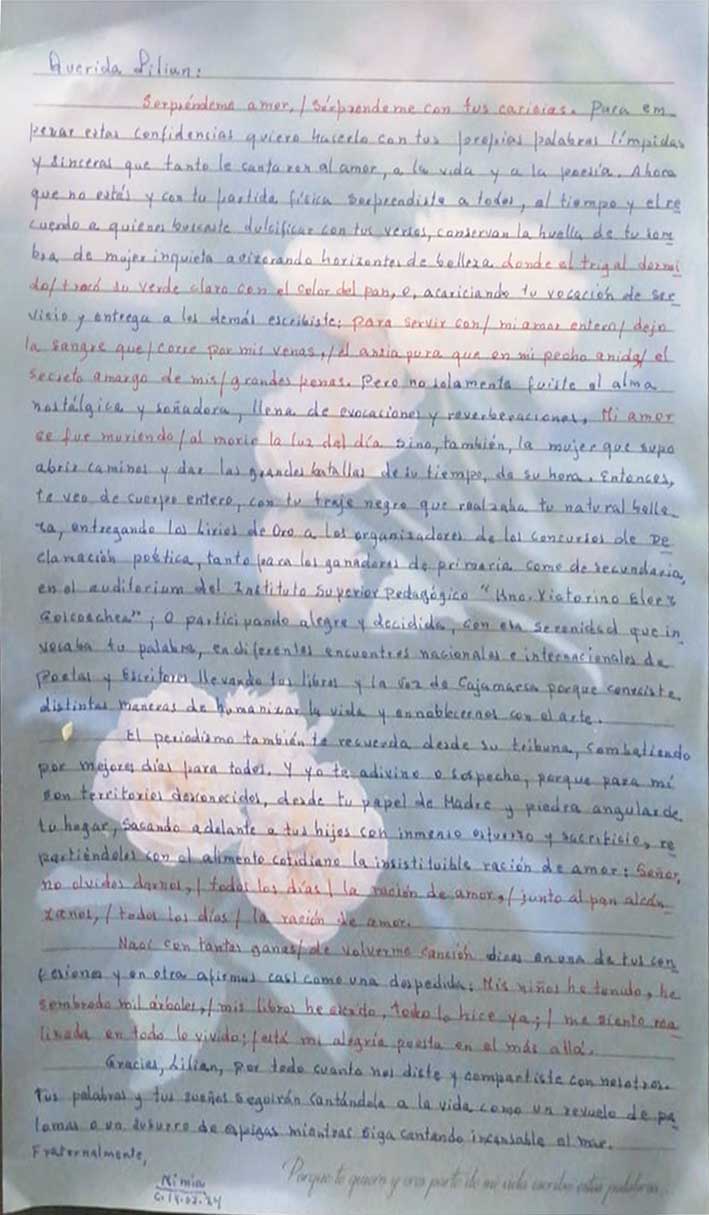 Querida Lilian:
Sorpréndeme amor, / Sórprendeme con tus caricias. Para em-
pezar estas confidencias quiero hacerlo con tus propias palabras límpidas
y sinceras que tanto le cantaron al amor, a la vida y a la poesía. Ahora
que no estás y con tu partida física sorprendiste a todos, al tiempo y el re
cuerdo a quienes buscaste dulcificar con tus versos, conservan la huella de tu som
bra de mujer inquieta avizorando horizontes de belleza donde el trigal dormi
do/ trocó su verde claro con el color del pan, o, acariciando tu vocación de ser
vicio y entrega a los demás escribiste: para servir con/ mi amor entero/ dejo
la sangre que/ corre por mis venas,/ el ansia pura que en mi pecho anida/ el
secreto amargo de mis/ grandes penas. Pero no solamente fuiste el alma
nostálgica y soñadora, llena de evocaciones y reverberaciones, Mi amor
se fue muriendo/ al morir la luz del día sino, también, la mujer que supo
abrir caminos y dar las grandes batallas de su tiempo, de su hora. Entonces,
te veo de cuerpo entero, con tu traje negro que realzaba tu natural belle-
za, entregando los Lirios de Oro a los organizadores de los concursos de De
clamación poética, tanto para los ganadores de primaria como de secundaria,
en el auditorium del Instituto Superior Pedagógico "Hno. Victorino Elorz
Goicoechea"; O participando alegre y decidida, con esa serenidad que in
vocaba tu palabra, en diferentes encuentros nacionales e internacionales de
Poetas y Escritores llevando tus libros y la voz de Cajamarca porque conociste
distintas maneras de humanizar la vida y ennoblecernos con el arte.
El periodismo también te recuerda desde su tribuna, combatiendo
por mejores días para todos. Y yo te adivino o sospecho, porque para mí
son territorios desconocidos, desde tu papel de Madre y piedra angular de
tu hogar, sacando adelante a tus hijos con inmenso esfuerzo y sacrificio, re
partiéndoles con el alimento cotidiano la insistituible ración de amor: Señor,
no olvides darnos, / todos los días / la ración de amor, / junto al pan alcán
zanos, / todos los días / la ración de amor.
Nací con tantas ganas/ de volverme canción dices en una de tus con
fesiones y en otra afirmas casi como una despedida: Mis niños he tenido, he
sembrado mil árboles, / mis libros he escrito, todo lo hice ya; / me siento rea
lizada en todo lo vivido; / está mi alegría puesta en el más allá.
Gracias, Lilian, por todo cuanto nos diste y compartiste con nosotros.
Tus palabras y tus sueños seguirán cantándole a la vida como un revuelo de pa
lomas o un susurro de espigas mientras siga cantando incansable el mar.
Fraternalmente,
Nimia
C. 14.02.24
Porque te quiero y eres parte de mi vida escribo estas palabras...